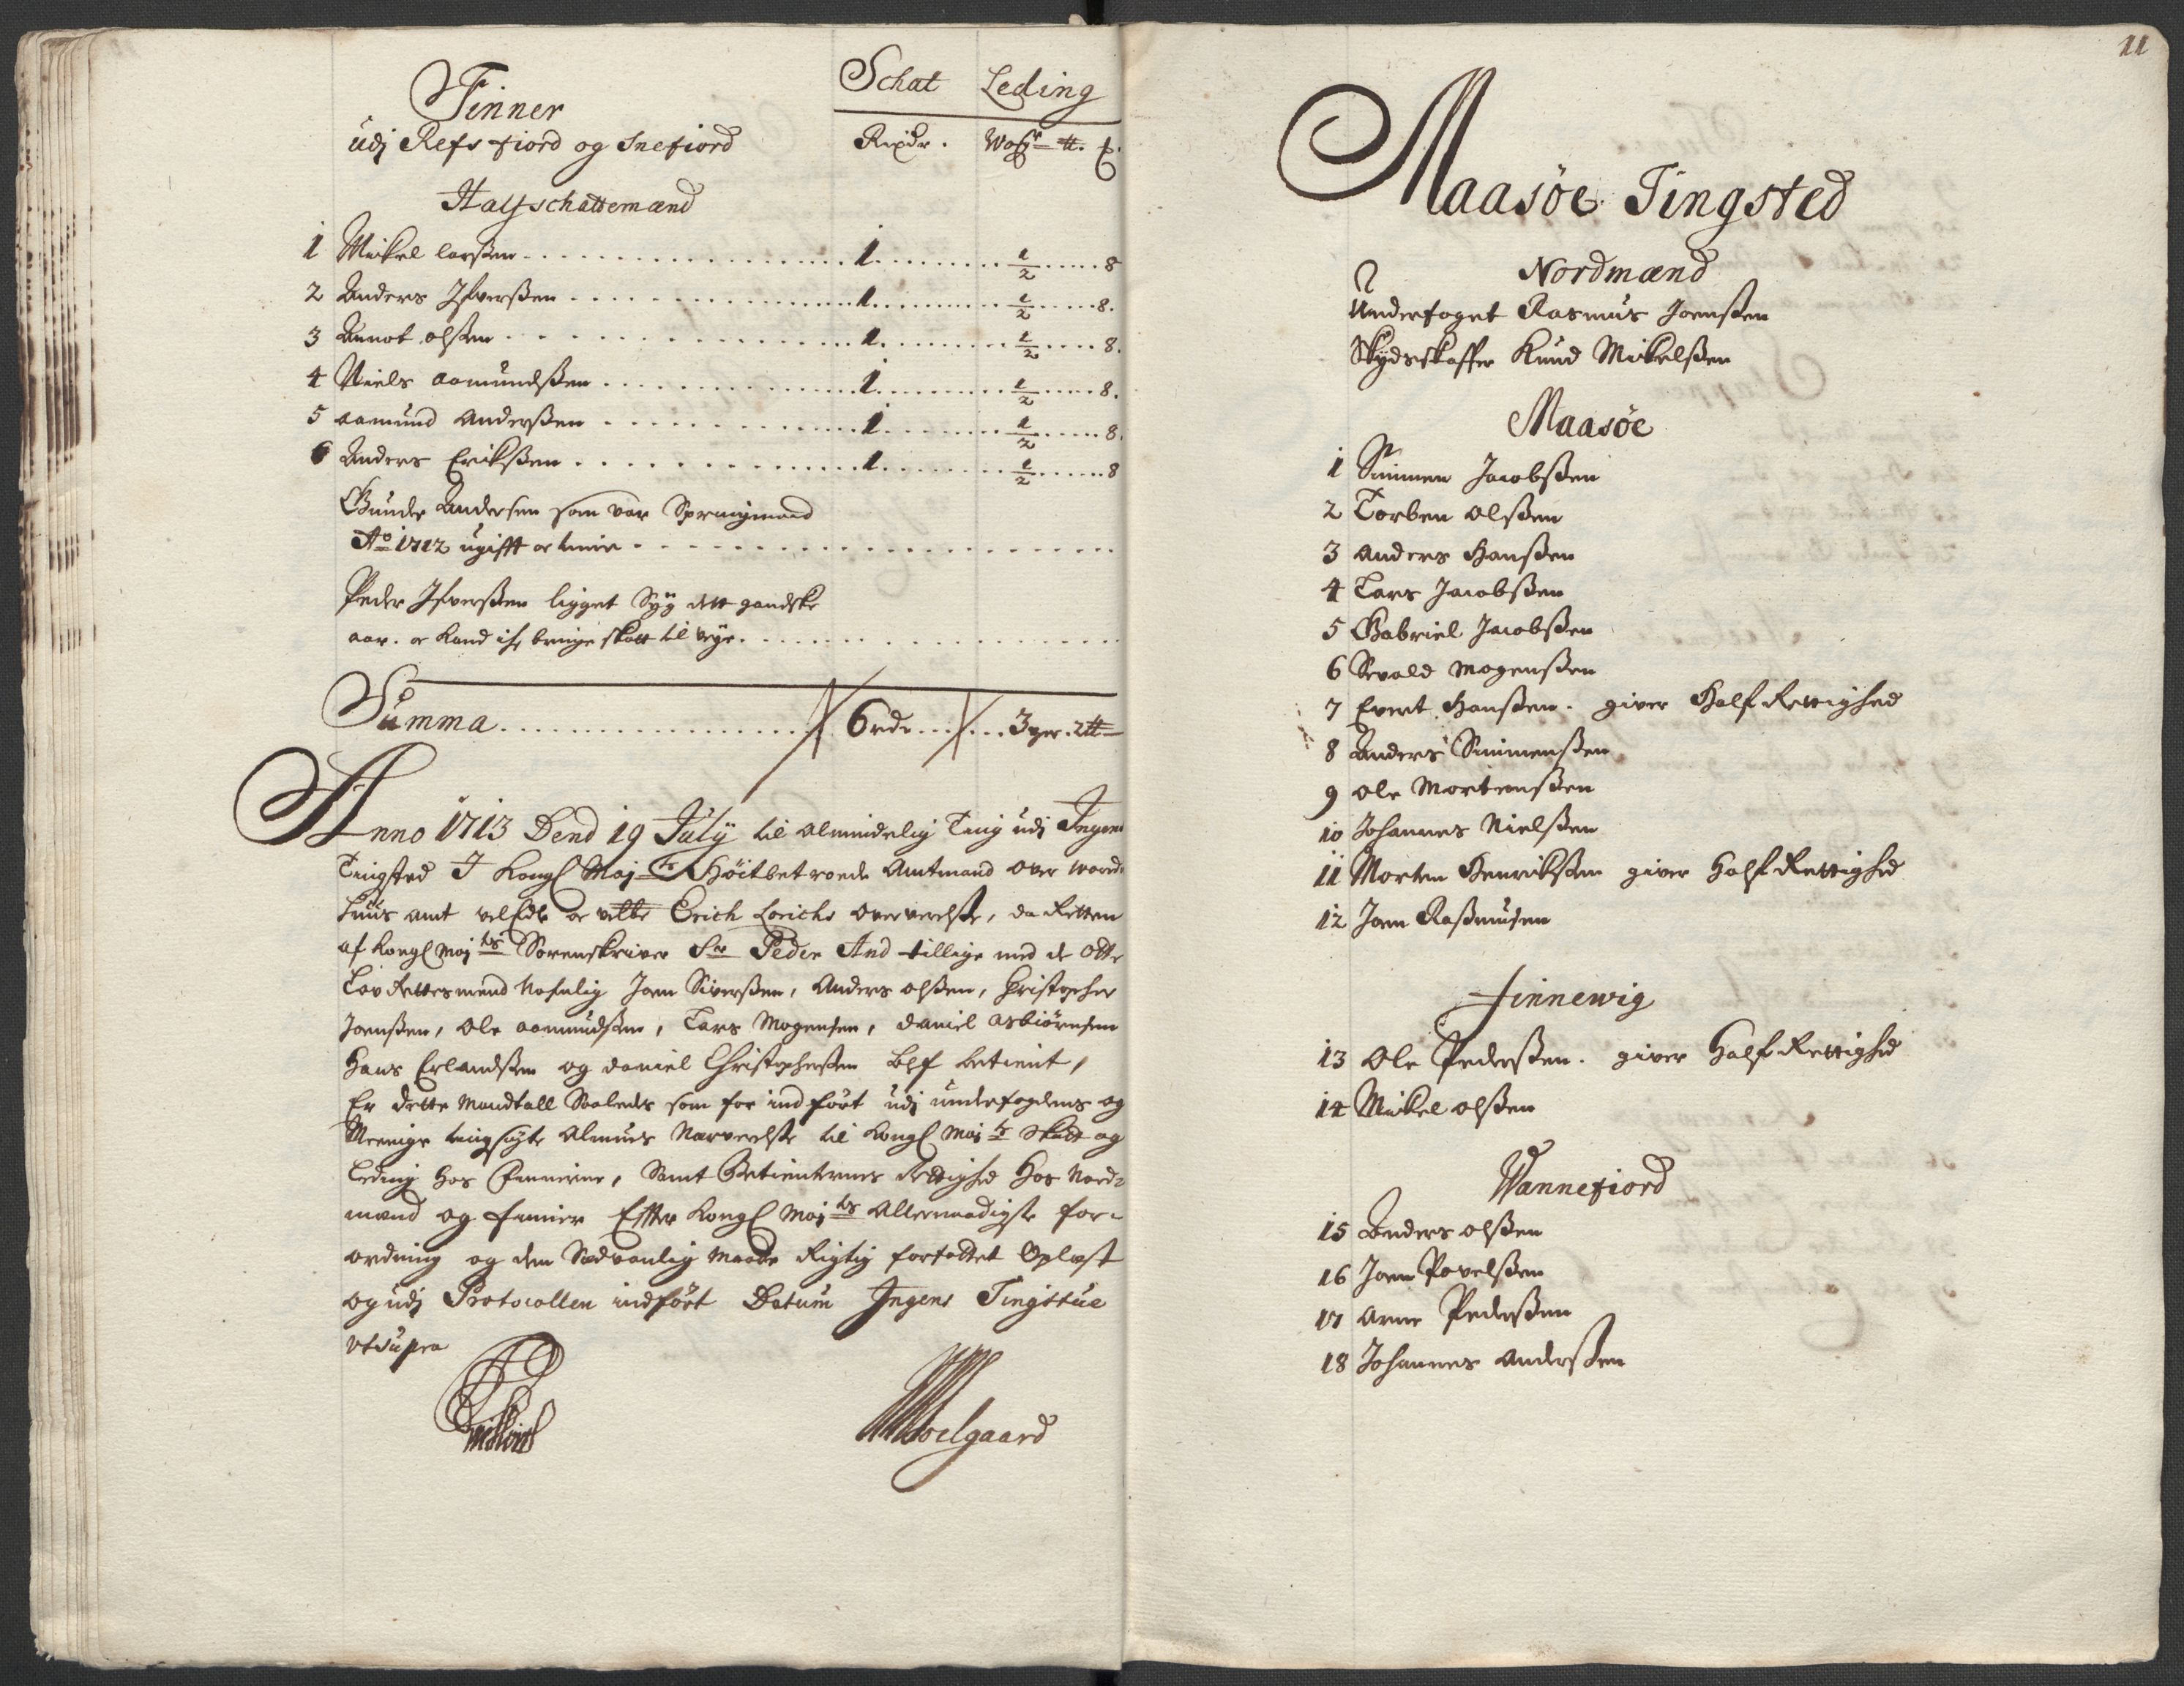 Finner
udj Refsfiord og Snefiord
Schat Leding
Rixdr. Woger ℔.
Halfschattemænd
1 Mickel larssen 1 1/2 8
2 Anders Ifwerssen 1 1/2 8.
3 olssen 1 1/2 8.
4 Niels Aamundssen 1 1/2 8.
5 Aamund Anderssen 1 1/2 8.
6 Anders Erichssen 1 1/2 8
Gunder Andersen som var Springmand
Ao 1712 ugifft
Peder Ifverssen ligget Syg dett gandske
aar. kand bringe skatt til veye.
Summa 6 rdr 3 wger. 2℔
Anno 1713 Dend 19 July til Almindelig Ting udj Ingens
Tingsted J Kongl May ts Høitbetroede Amtmand over
huus amt Erich Lorichs overværelse, da Retten
af Kongl May ts Sorenskriver Sr Peder And tillige med de otte
Lavrettesmænd Nafnlig Joen Siverssen, Anders olssen, Christopher
Joenssen, Ole Aamundssen, Lars Mogensen, Daniel Asbiørnsen
Hans Erlandssen og Daniel Christopherssen blef betient,
Er dette Mandtall Saaledes som for indført udj underfogdens og
Meenige tingsøgte Almues Nærværelse til Kongl May ts Skatt og
Leding hos Finnerne, Samt Betienternes Rettighed hos Nord-
mænd og finner Effter Kongl May ts Allernaadigste for-
ordning og den Sædvanlig Maade Rigtig forfattet Oplæst
og udj Protocollen indført Datum Ingens Tingstue
ut supra
Woelgaard
11
Maasöe Tingsted
Nordmænd
Underfoget Rasmus Joenssen
Skydsskaffer Knud Mickelssen
Maasöe
1 Simmen Jacobssen
2 Torben olssen
3 Anders Hanssen
4 Lars Jacobssen
5 Gabriel Jacobssen
6 Sevald Mogenssen
7 Evert Hanssen. giver Half Rettighed
8 Anders Simmenssen
9 Ole Mortenssen
10 Johannes Nielssen
11 Morten Henrikssen giver Half Rettighed
12 Joen Rassmusen
Finnewig
13 Ole Pederssen. giver Half Rettighed
14 Mickel olssen
Wannefiord
15 Anders olssen
16 Joen Povelssen
17 Arne Pederssen
18 Johannes Anderssen